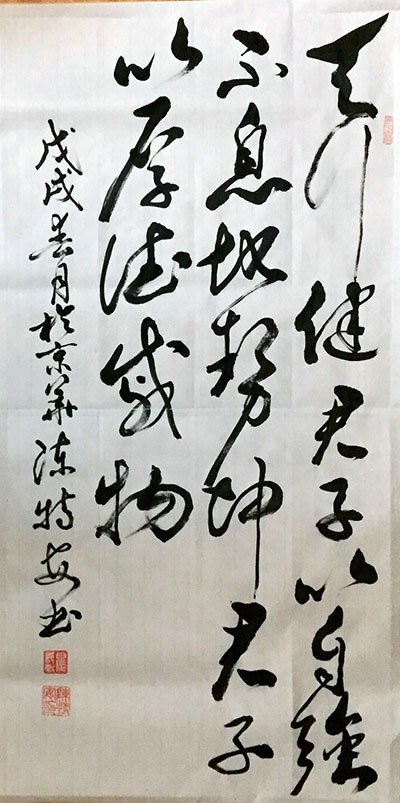 天行健君子以自强
不息地势坤君子
以厚德载物
戊戌春月於京华陈特安书